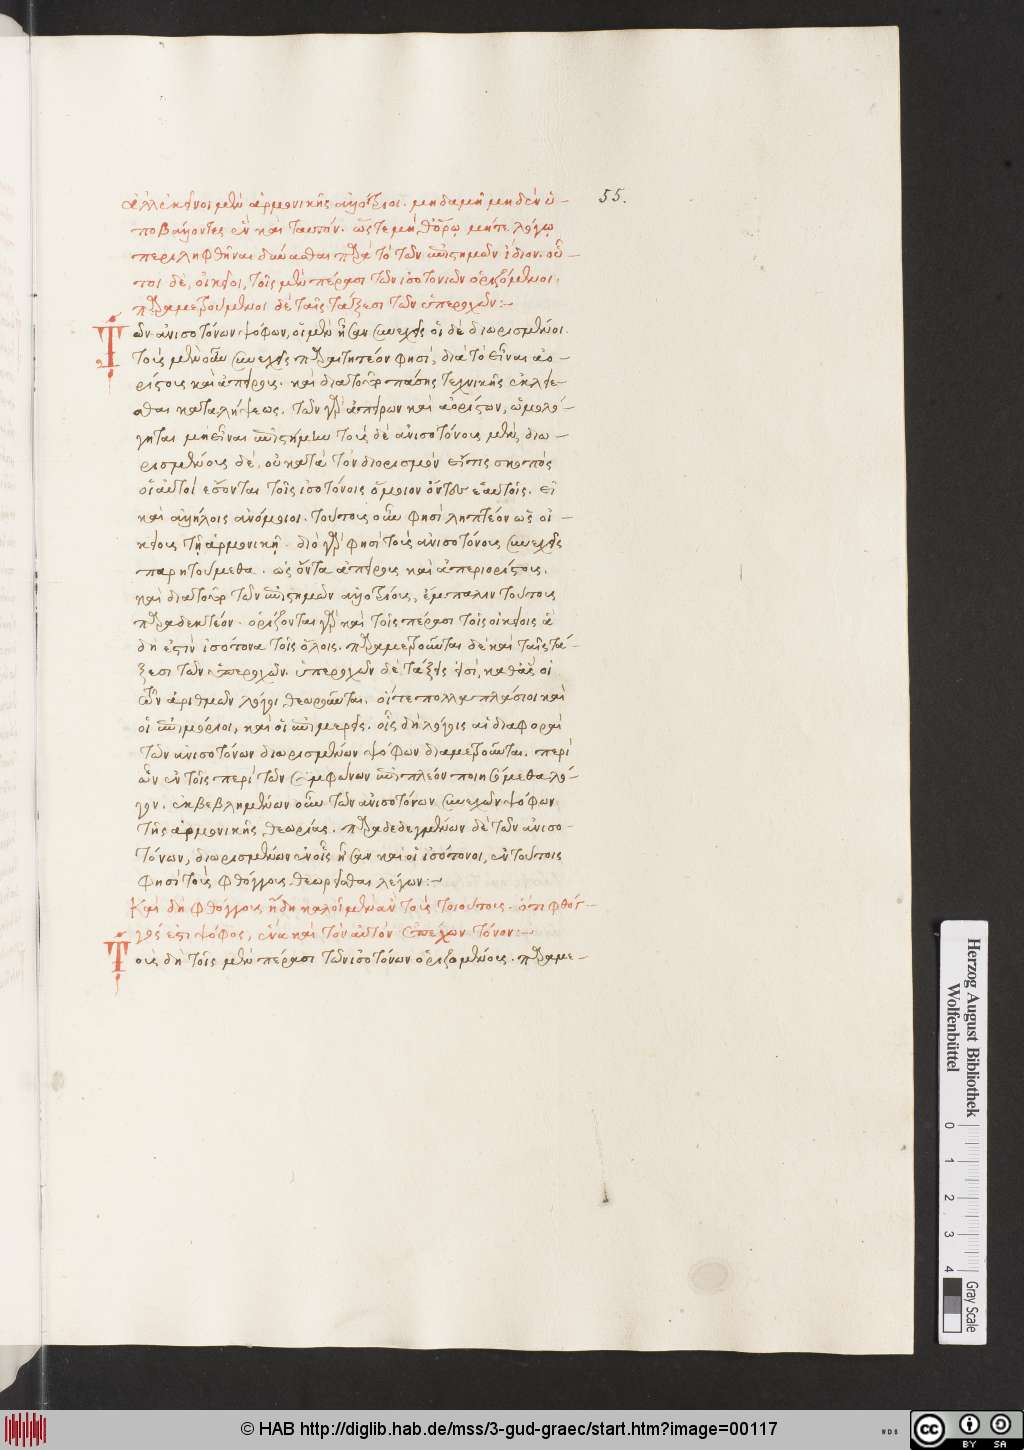 ἀλλ' ἐκεῖνοι μὲν ἁρμονικῆς ἀλλότριοι. μηδαμῆ μηδὲν ὑ-
55.
ποβάλλοντες ἓν καὶ ταυτόν. ὥστε μὴ θ' ὅρῳ μήτε λόγῳ
περιληφθῆναι δύνασθαι παρὰ τὸ τῶν ἐπιστημῶν ἴδιον. οὗ-
τοι δὲ, οἰκεῖοι, τοῖς μὲν πέρασι τῶν ἰσοτονιῶν ὁριζόμενοι.
παραμετρούμενοι δὲ ταῖς τάξεσι τῶν ὑπεροχῶν:~
Τῶν ἀνισοτόνων ψόφων, οἱ μὲν ἦσαν συνεχεῖς οἱ δὲ διωρισμένοι.
τοὺς μὲν οὖν συνεχεῖς παραιτητέον φησί, διὰ τὸ εἶναι ἀο-
ρίστους καὶ ἀπείρους. καὶ διὰ τοῦτο πάσης τεχνικῆς ἐκλε-
σθαι καταλήψεως. τῶν γὰρ ἀπείρων καὶ ἀορίστων, ὡμολό-
γηται μὴ εἶναι ἐπιστήμην τοὺς δὲ ἀνισοτόνους μὲν, διω-
ρισμένους δὲ, οὐ κατὰ τὸν διορισμὸν εἴ τις σκοποῖ
οἱ αὐτοὶ ἔσονται τοῖς ἰσοτόνοις ὅμοιον ὄντος ἑαυτοῖς. εἰ
καὶ ἀλλήλοις ἀνόμοιοι. τούτους οὖν φησὶ ληπτέον ὡς οἰ-
κείους τῇ ἁρμονικῇ. διὸ γὰρ φησὶ τοὺς ἀνισοτόνους συνεχεῖς
παρητούμεθα. ὡς ὄντα ἀπείρους καὶ ἀπεριορίστους.
καὶ διὰ τοῦτο τῶν ἐπιστημῶν ἀλλοτρίους, ἔμπαλιν τούτους
παραδεκτέον. ὁρίζονται γὰρ καὶ τοῖς πέρασι τοῖς οἰκείοις ἃ
δή ἐστιν ἰσότονα τοῖς ὅλοις. παραμετροῦνται δὲ καὶ ταῖς τά-
ξεσι τῶν ὑπεροχῶν. ὑπεροχῶν δὲ τάξεις εἰσί, καθ' ἃς οἱ
τῶν ἀριθμῶν λόγοι, θεωροῦνται. οἵ τε πολλαπλάσιοι καὶ
οἱ ἐπιμόριοι, καὶ οἱ ἐπιμερεῖς. οἷς δὴ λόγοις αἱ διαφοραὶ
τῶν ἀνισοτόνων διωρισμένων ψόφων διαμετροῦνται. περὶ
ὧν ἐν τοῖς περὶ τῶν συμφώνων ἐπιπλέον ποιησόμεθα λό-
γον. ἐκβεβλημένων οὖν τῶν ἀνισοτόνων συνεχῶν ψόφων
τῆς ἁρμονικῆς θεωρίας. παραδεδεγμένων δὲ τῶν ἀνισο-
τόνων, διωρισμένων ἐν οἷς ἦσαν καὶ οἱ ἰσότονοι, ἐν τούτοις
φησὶ τοὺς φθόγγους θεωρεῖσθαι λέγων:~
Καὶ δὴ φθόγγους ἤδη καλοῖμεν ἂν τοὺς τοιούτους. ὅτι φθόγ-
γός ἐστι ψόφος, ἕνα καὶ τὸν αὐτὸν ἐπέχων τόνον:~
Τοὺς δὴ τοῖς μὲν πέρασι τῶν ἰσοτόνων ὁριζομένους. παραμε-
Herzog August Bibliothek
Wolfenbüttel
0 1 2 3 4
Gray Scale
© HAB http://diglib.hab.de/mss/3-gud-graec/start.htm?image=00117
cc BY SA